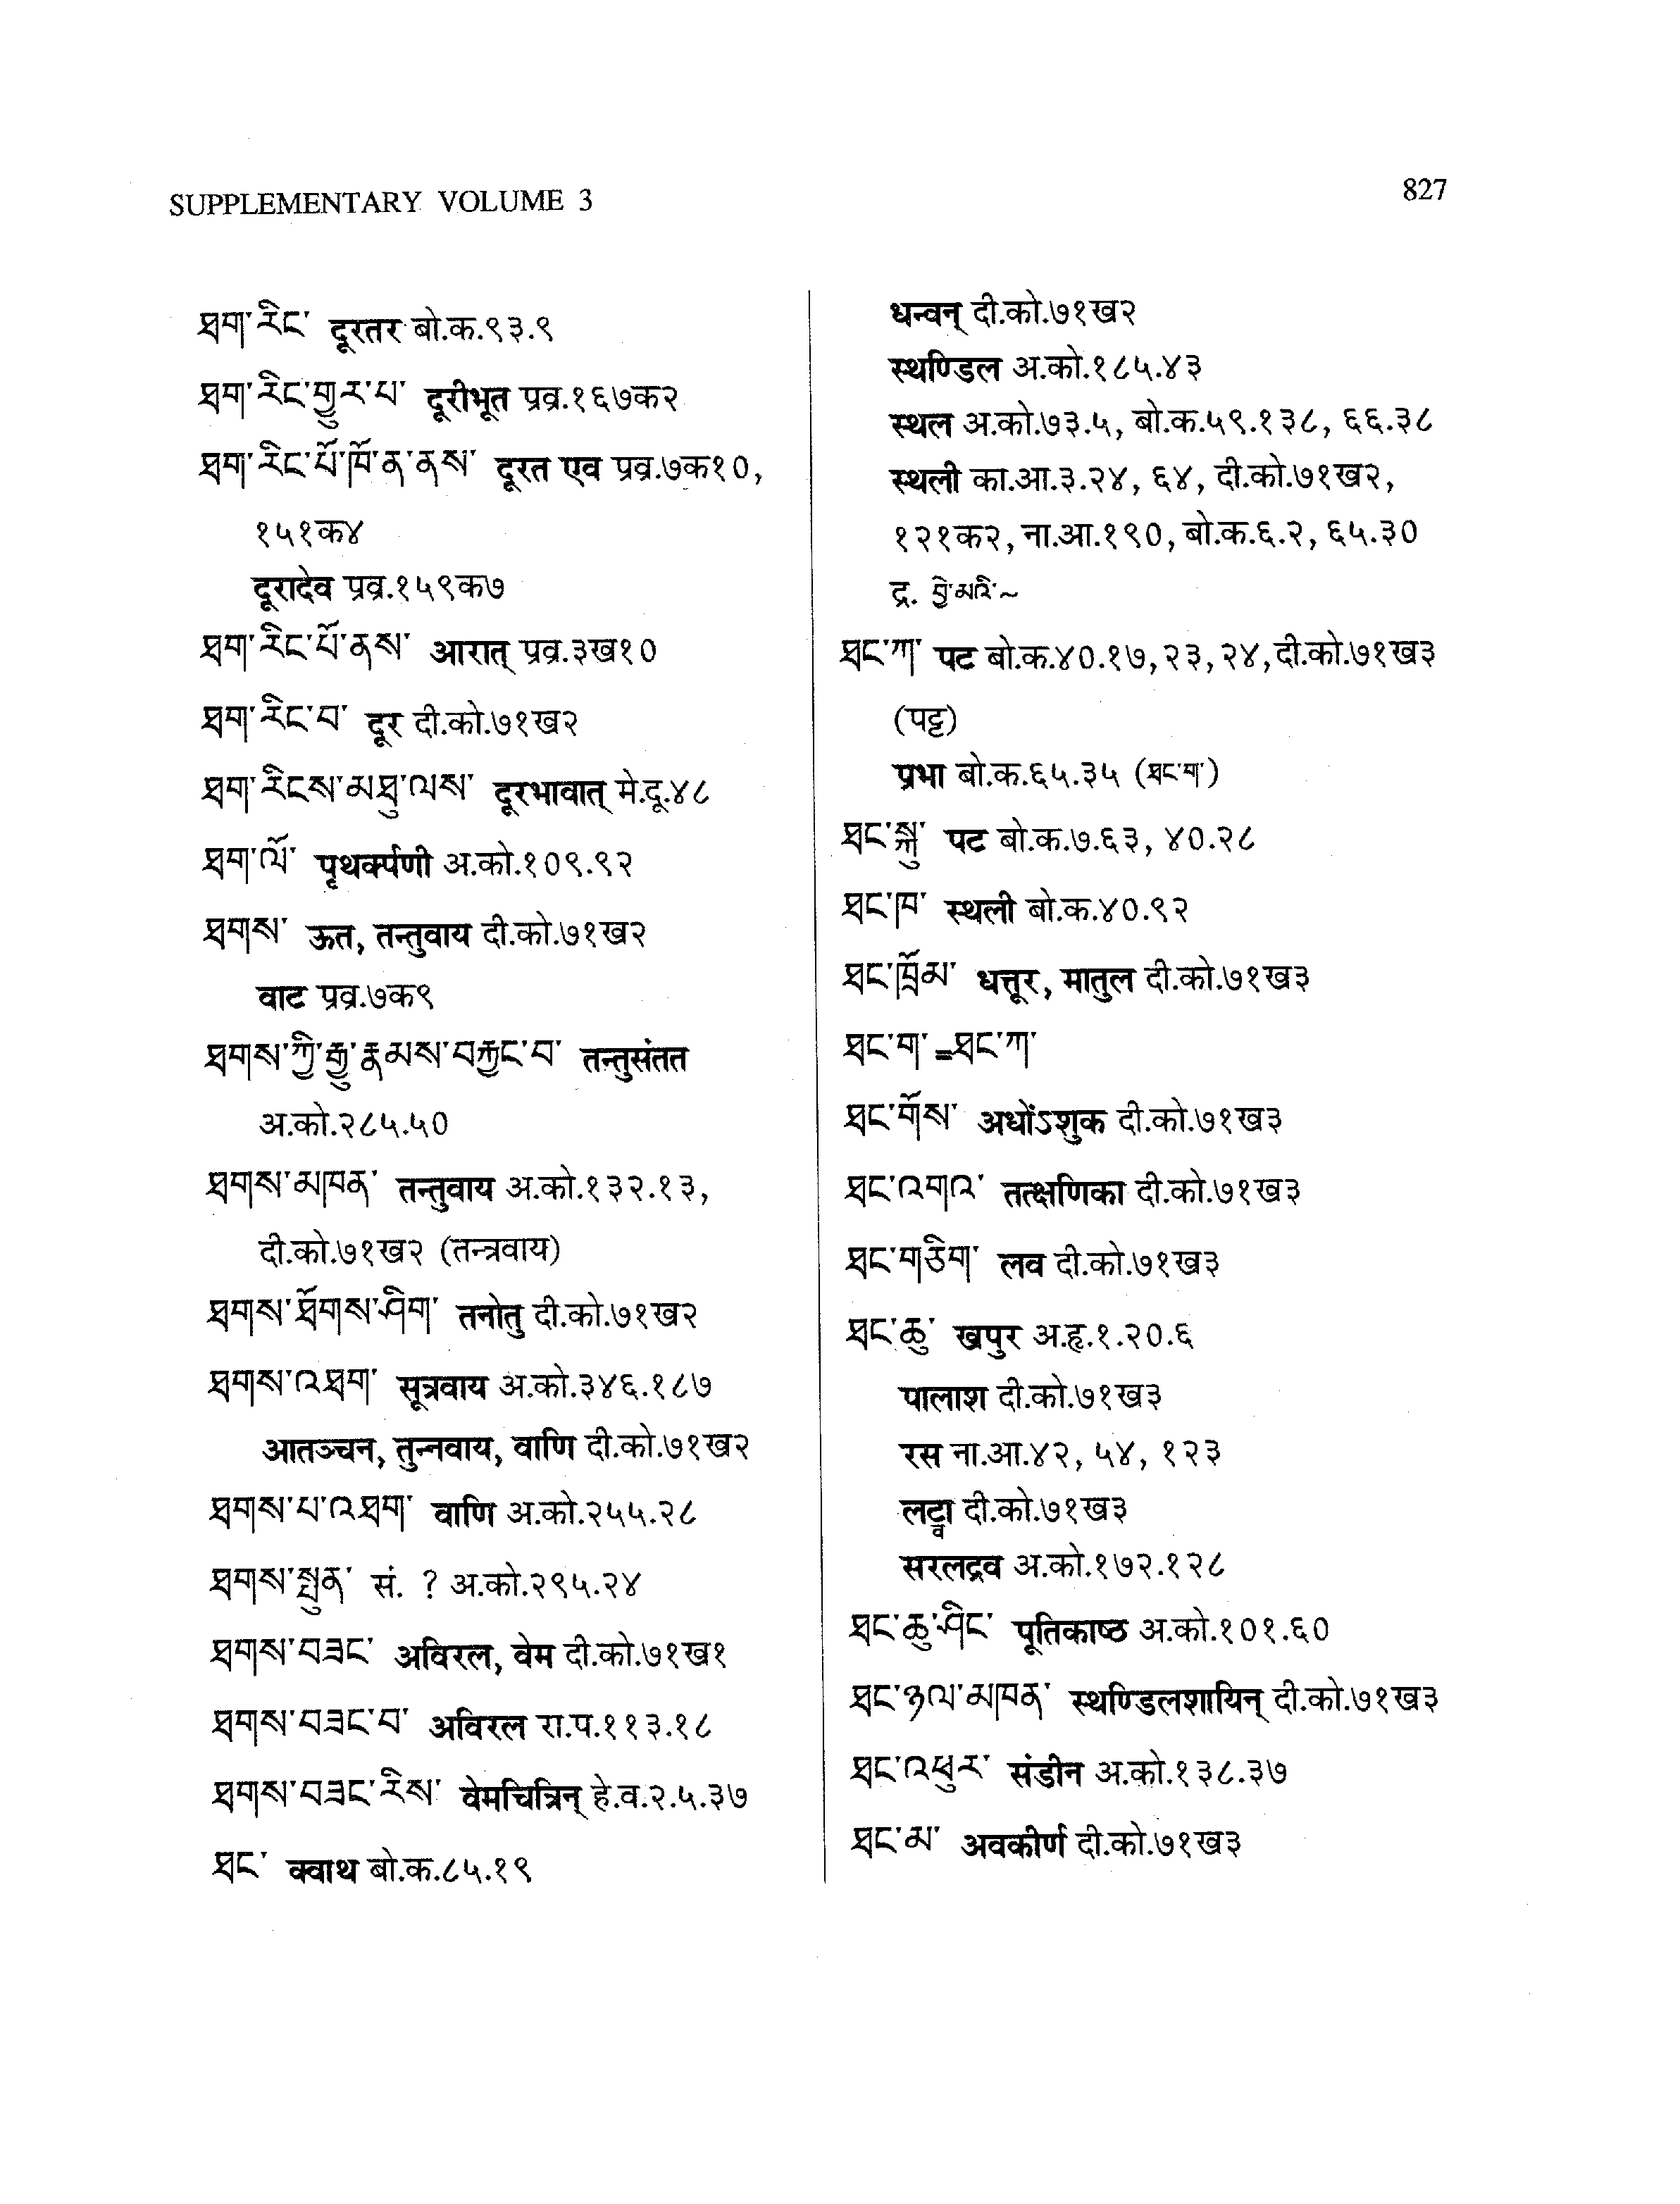 SUPPLEMENTARY VOLUME 3
827
ཐག་རིང་ दूरतर बो.क.९३.९
ཐག་རིང་གྱུར་པ་ दूरीभूत प्रव्र.१६७क२
ཐག་རིང་པོ་ཁོ་ན་ནས་ दूरत एव प्रव्र.७क१०,
१५१क४
दूरादेव प्रव्र.१५९क७
ཐག་རིང་པོ་ནས་ आरात् प्रव्र.३ख१०
ཐག་རིང་བ་ दूर दी.को.७१ख२
ཐག་རིངས་མཐུ་ལས་ दूरभावात् मे.दू.४८
ཐག་ལོ་ पृथक्र्पणी अ.को.१०९.९२
ཐགས་ ऊत, तन्तुवाय दी.को.७१ख२
वाट प्रव्र.७क९
ཐགས་ཀྱི་རྒྱུ་རྣམས་བརྐྱང་བ་ तन्तुसंतत
अ.को.२८५.५०
ཐགས་མཁན་ तन्तुवाय अ.को.१३२.१३,
दी.को.७१ख२ (तन्त्रवाय)
ཐགས་ཐོགས་ཤིག་ तनोतु दी.को.७१ख२
ཐགས་འཐག་ सूत्रवाय अ.को.३४६.१८७
आतञ्चन, तुन्नवाय, वाणि दी.को.७१ख२
ཐགས་པ་འཐག་ वाणि अ.को.२५५.२८
ཐགས་སྤུན་ सं. ? अ.को.२९५.२४
ཐགས་བཟང་ अविरल, वेम दी.को.७१ख१
ཐགས་བཟང་བ་ अविरल रा.प.११३.१८
ཐགས་བཟང་རིས་ वेमचित्रिन् हे.व.२.५.३७
ཐང་ क्वाथ बो.क.८५.१९
धन्वन् दी.को.७१ख२
स्थण्डिल अ.को.१८५.४३
स्थल अ.को.७३.५, बो.क.५९.१३८, ६६.३८
स्थली का.आ.३.२४, ६४, दी.को.७१ख२,
१२१क२, ना.आ.१९०, बो.क.६.२, ६५.३०
द्र. བྱེ་མའི་~
ཐང་ཀ་ पट बो.क.४०.१७,२३,२४,दी.को.७१ख३
(पट्ट)
प्रभा बो.क.६५.३५ (ཐང་ག་)
ཐང་སྐུ་ पट बो.क.७.६३, ४०.२८
ཐང་ཁ་ स्थली बो.क.४०.९२
ཐང་ཁྲོམ་ धत्तूर, मातुल दी.को.७१ख३
ཐང་ག་=ཐང་ཀ་
ཐང་གོས་ अधोंऽशुक दी.को.७१ख३
ཐང་འགའ་ तत्क्षणिका दी.को.७१ख३
ཐང་གཅིག་ लव दी.को.७१ख३
ཐང་ཆུ་ खपुर अ.हृ.१.२०.६
पालाश दी.को.७१ख३
रस ना.आ.४२, ५४, १२३
लट्वा दी.को.७१ख३
सरलद्रव अ.को.१७२.१२८
ཐང་ཆུ་ཤིང་ पूतिकाष्ठ अ.को.१०१.६०
ཐང་ཉལ་མཁན་ स्थण्डिलशायिन् दी.को.७१ख३
ཐང་འཕུར་ संडीन अ.को.१३८.३७
ཐང་མ་ अवकीर्ण दी.को.७१ख३